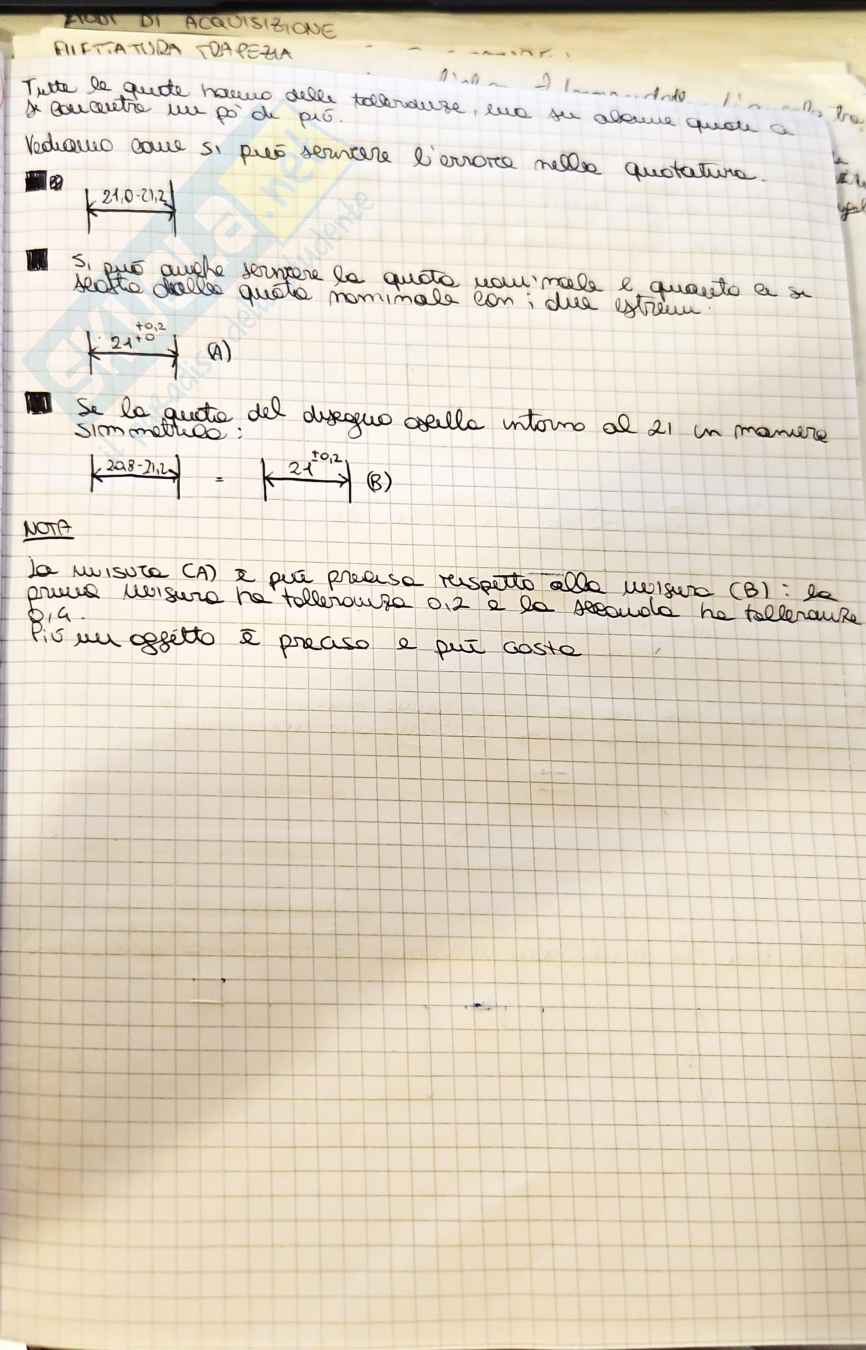 DI ACQUISIZIONE
FILETTATURA TRAPEZIA
Tutte le quote hanno delle tolleranze, ma su alcune quote ci
si concentra un pò di più.
Vediamo come si può scrivere l'errore nella quotatura.
21,0-21,2
Si può anche scrivere la quota nominale e quanto ci si
scosta dalla quota nominale con i due estremi.
+0,2
21 +0 (A)
Se la quota del disegno oscilla intorno al 21 in maniera
simmetrica:
20,8-21,2 = 21 ±0,2 (B)
NOTA
La misura (A) è più precisa rispetto alla misura (B): la
prima misura ha tolleranza 0,2 e la seconda ha tolleranza
0,4.
Più un oggetto è preciso e più costa
SKUOLA.net